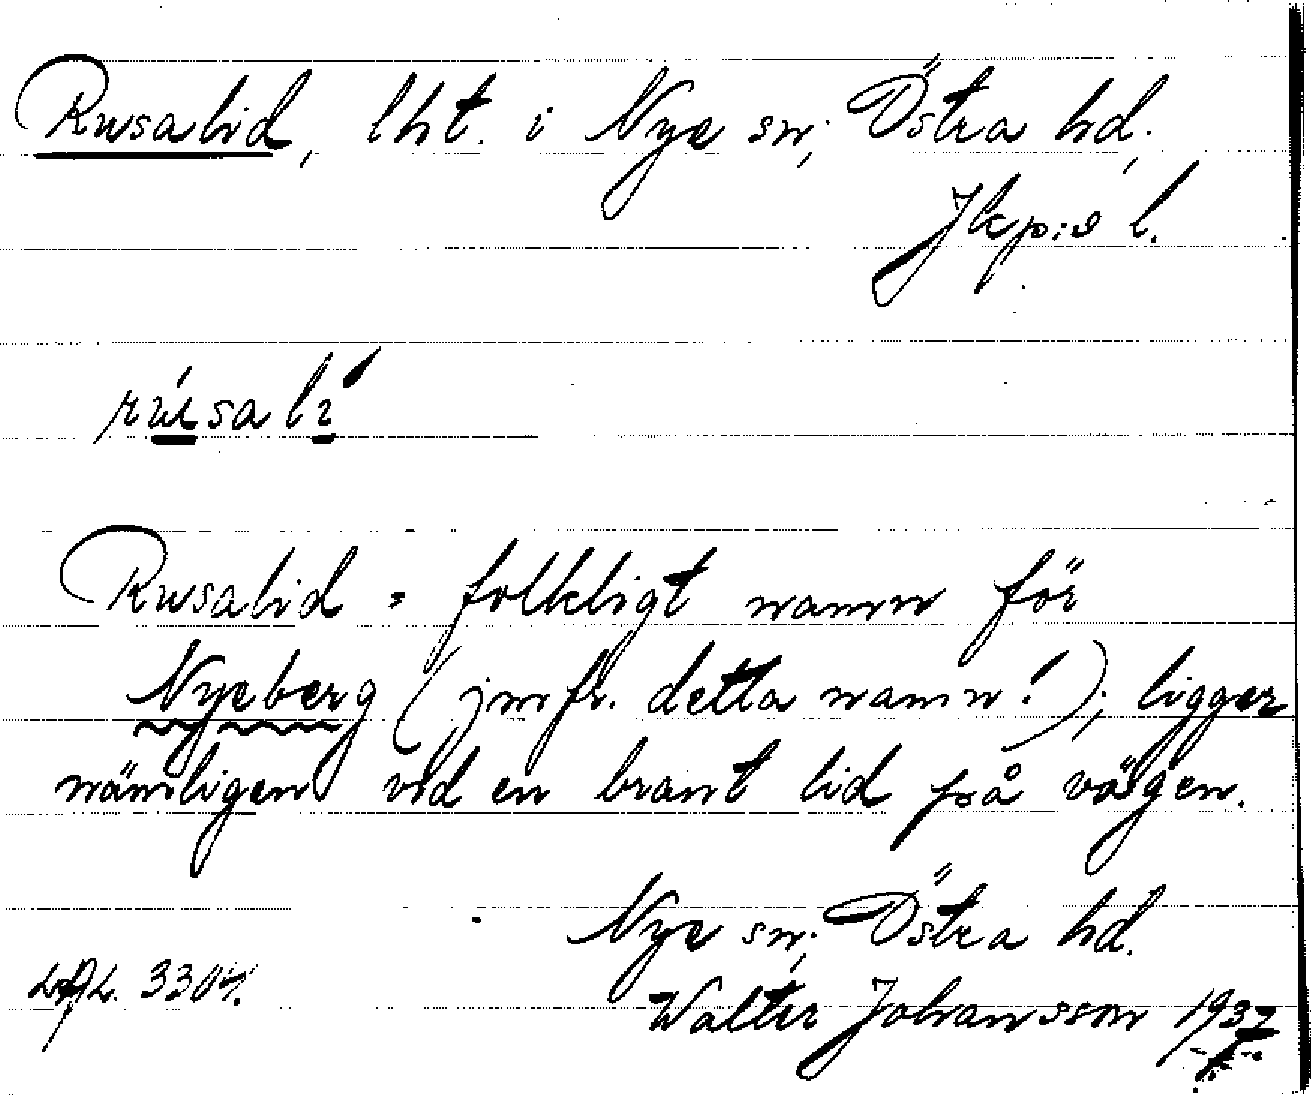 Rusalid, lht. i Nye sn; Östra hd,
Jkp:s l.
rúsalí
Rusalid = folkligt namn för
Nyeberg (jmfr. detta namn!); ligger
nämligen vid en brant lid på vägen.
Nye sn; Östra hd.
3304.
Walter Johansson 1937